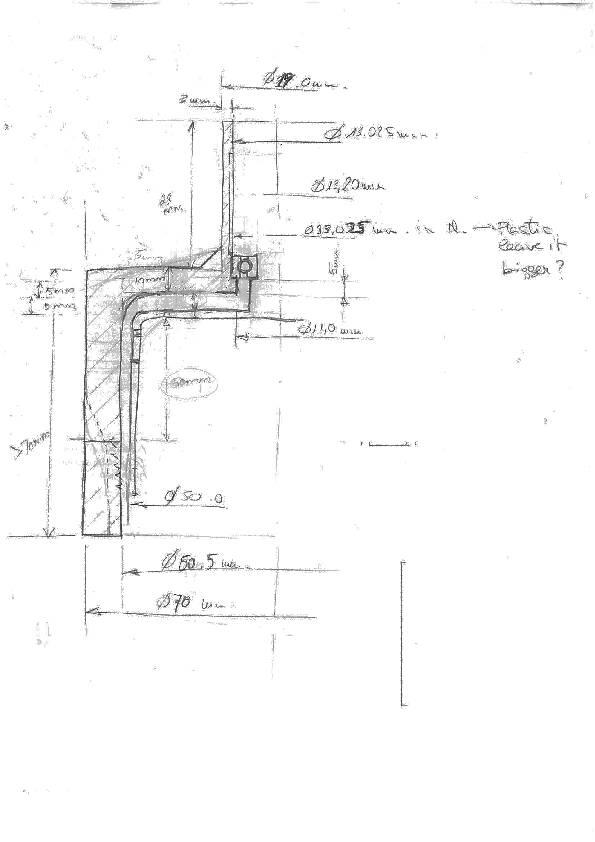 Ø19.0mm.
2mm.
Ø13.025mm.
Ø13,20mm
22
mm.
Ø13,025mm. in the → Plastic,
leave it
bigger?
5mm
5mm
10mm
Ø11,0mm
50mm
>70mm
Ø50.0
Ø50,5mm.
Ø70 mm.